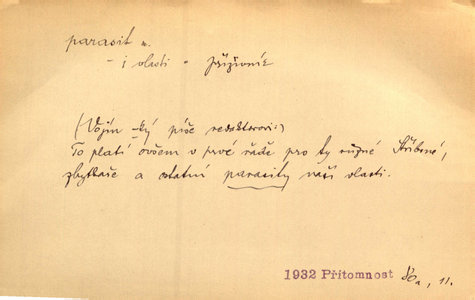 parasit m.
- i vlasti = příživník
(Vojín -ký píše redaktorovi:)
To platí ovšem v prvé řadě pro ty různé Stříbrné,
zbytkaře a ostatní parasity naší vlasti.
1932 Přítomnost 86a, 11.